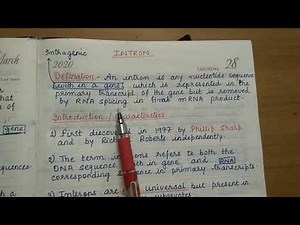 Intragenic
INTRON
2020
SATURDAY 28
March
Defination:- An intron is any nucleotide sequence
(with in a gene) which is represented in the
primary transcript of the gene but is removed
by RNA splicing in final mRNA product.
gene
Introduction / Characteristics
1) First discovered in 1977 by Phillip Sharp
and by Richard Roberts independently.
2) The term introns refers to both the
DNA sequence with in gene and RNA
corresponding sequence in primary transcripts
3) Introns are universal but present in